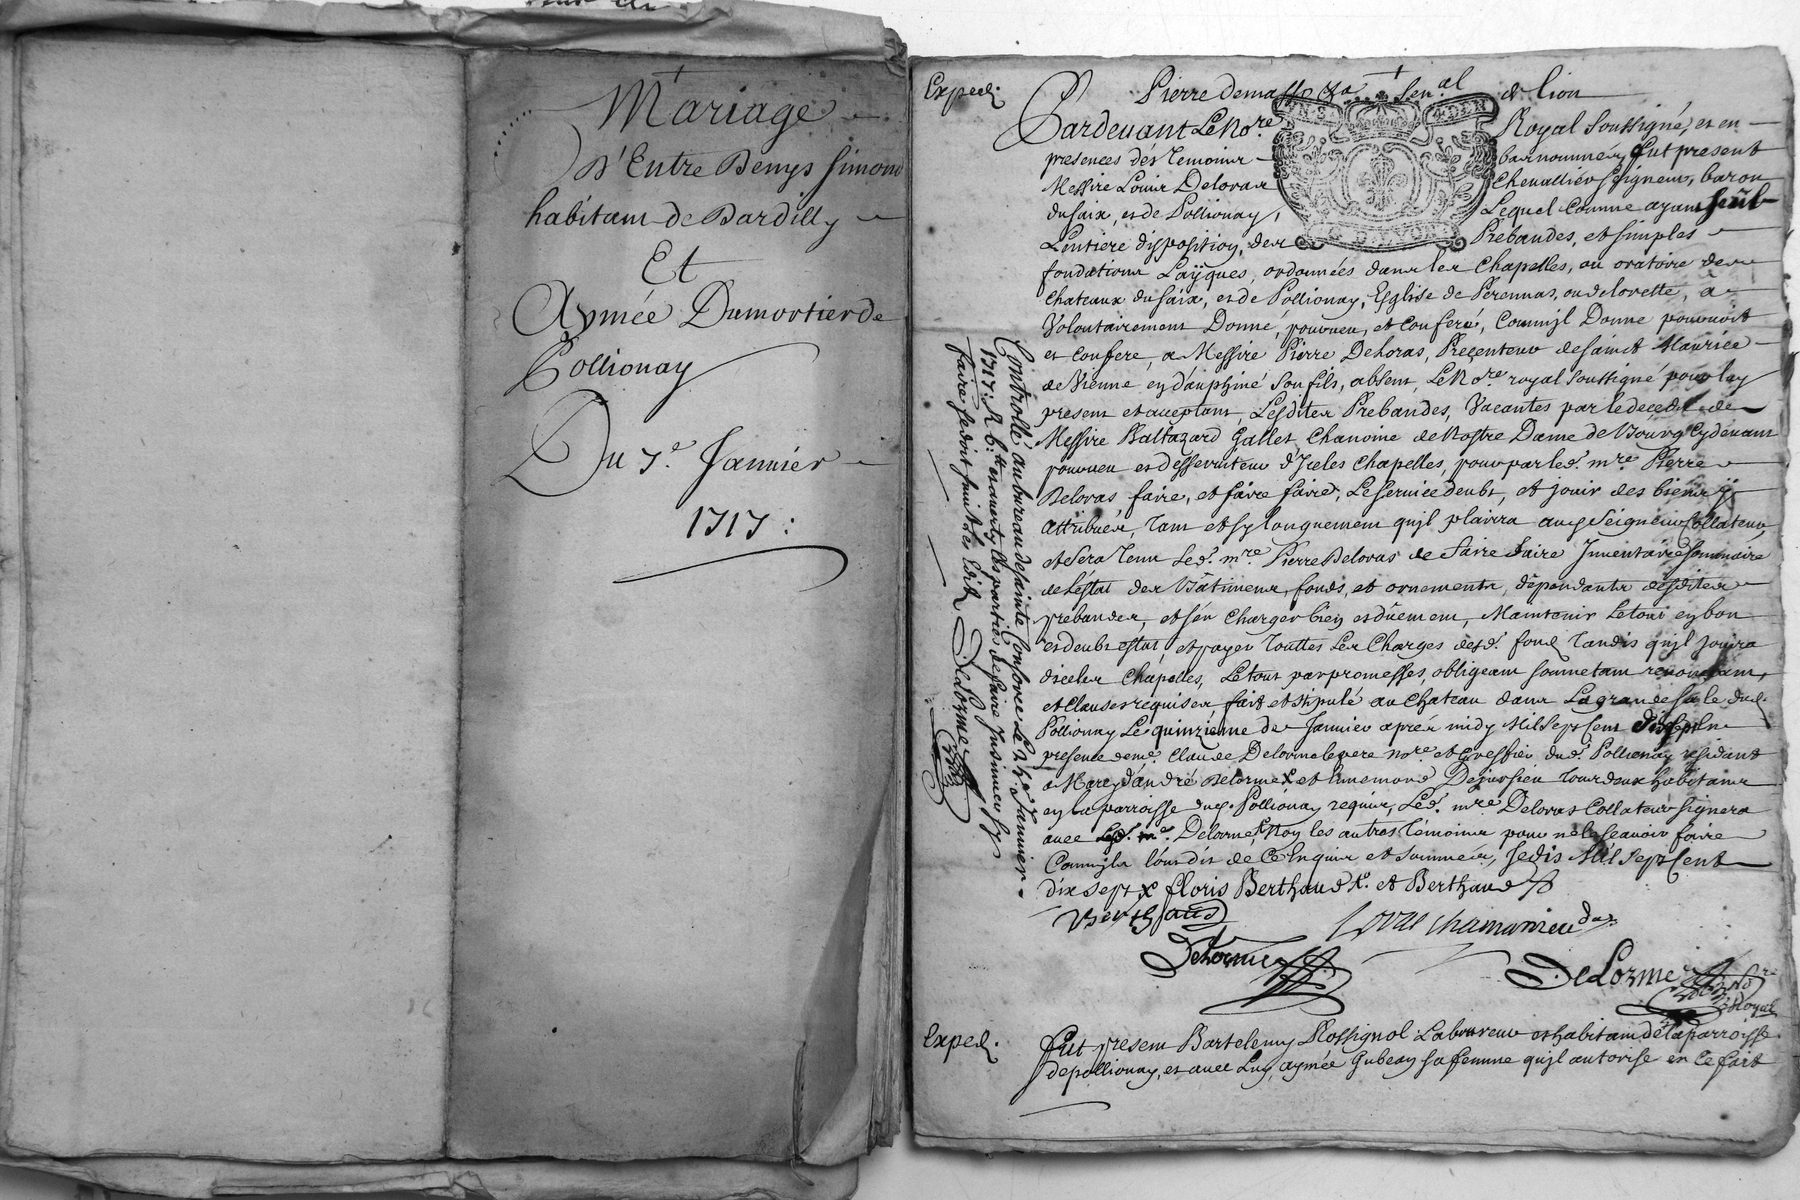 Mariage
D'Entre Denys Simond
habitant de Dardilly
Et
Aymée Dumortier de
Pollionay
Du 7e. Janvier
1717 :
Exped.
Pierre demasso
Sen.al de lion
Pardevant Le No.re Royal soussigné, et en
presences dés Temoins bas nommés, fut present
Messire Louis Deloras Chevallier seigneur, baron
du saix, et de Pollionay, Lequel comme ayant seul
L'entiere disposition, des Prebandes, et simples
fondations Layques, ordonnées dans les Chapelles, ou oratoire des
Chateaux du saix, et de Pollionay, Eglise de Perennas, ou de lorette, a
Volontairement Donné, pourveu, et conferé, Comm'jl Donne pourvoit
et confere, a Messire Pierre Deloras, Preçenteur de sainct Maurice
de Vienne en dauphiné son fils, absent, Le No.re royal soussigné pour luy
present et acceptant, Lesdites Prebandes, Vacantes par le decedz de
Messire Baltazard Gallet Chanoine de Nostre Dame de Bourg Cydevant
pourveu et desserviteur d'Jceles Chapelles, pour par led. m.re Pierre
Deloras faire, et faire faire, Le service deubt, et jouir des biens y
attribués, Tant et sy longuement qu'jl plairra aud. Seigneur Collateur,
et sera Tenu Led. m.re Pierre Deloras de faire faire Jnventaire sommaire
de L'éstat des Bâtimens, fonds, et ornements, dépendants désdites
prebandes, et s'en Charger bien et dûement, Maintenir Le tout en bon
et deubt estat, et payer Touttes Les Charges desd. fond Tandis qu'jl Jouira
d'iceles Chapelles, Le tout par promesses, obligeant soumetant renonceant,
et Clauses requises, fait et stipulé au Chateau dans La grande sale dud.
Pollionay Le quinzieme de Janvier aprés midy Mil sept cent dix sept en
presence de m.e Claude Delorme le pere no.re et Greffier dud. Pollionay residant
a Marcy d'andré Delorme et Ennemond Dejussieu Tous deux habitans
en La parroisse dud. Pollionay requis, Led. m.re Deloras Collateur signera
avec Led. m.e Delorme, Non les autres Témoins pour ne le sçavoir faire
Comm'jls l'ont dit de Ce Enquis et sommés, Je dis Mil sept Cent
dix sept floris Berthaud et Berthaud
Berthaud
Loras chamanieu
Delorme
DeLorme
No.re Royal
Controllé au bureau de sainte Consorce Le
Janvier
1717. R. et averty les parties de faire Jnsinuer sy
faire se doit suivt. les Edits DeLorme
Exped.
Fut present Bartelemy Rossignol Laboureur et habitant de la parroisse
de pollionay, et avec Luy, aymée Gubean sa femme qu'jl autorise en ce fait